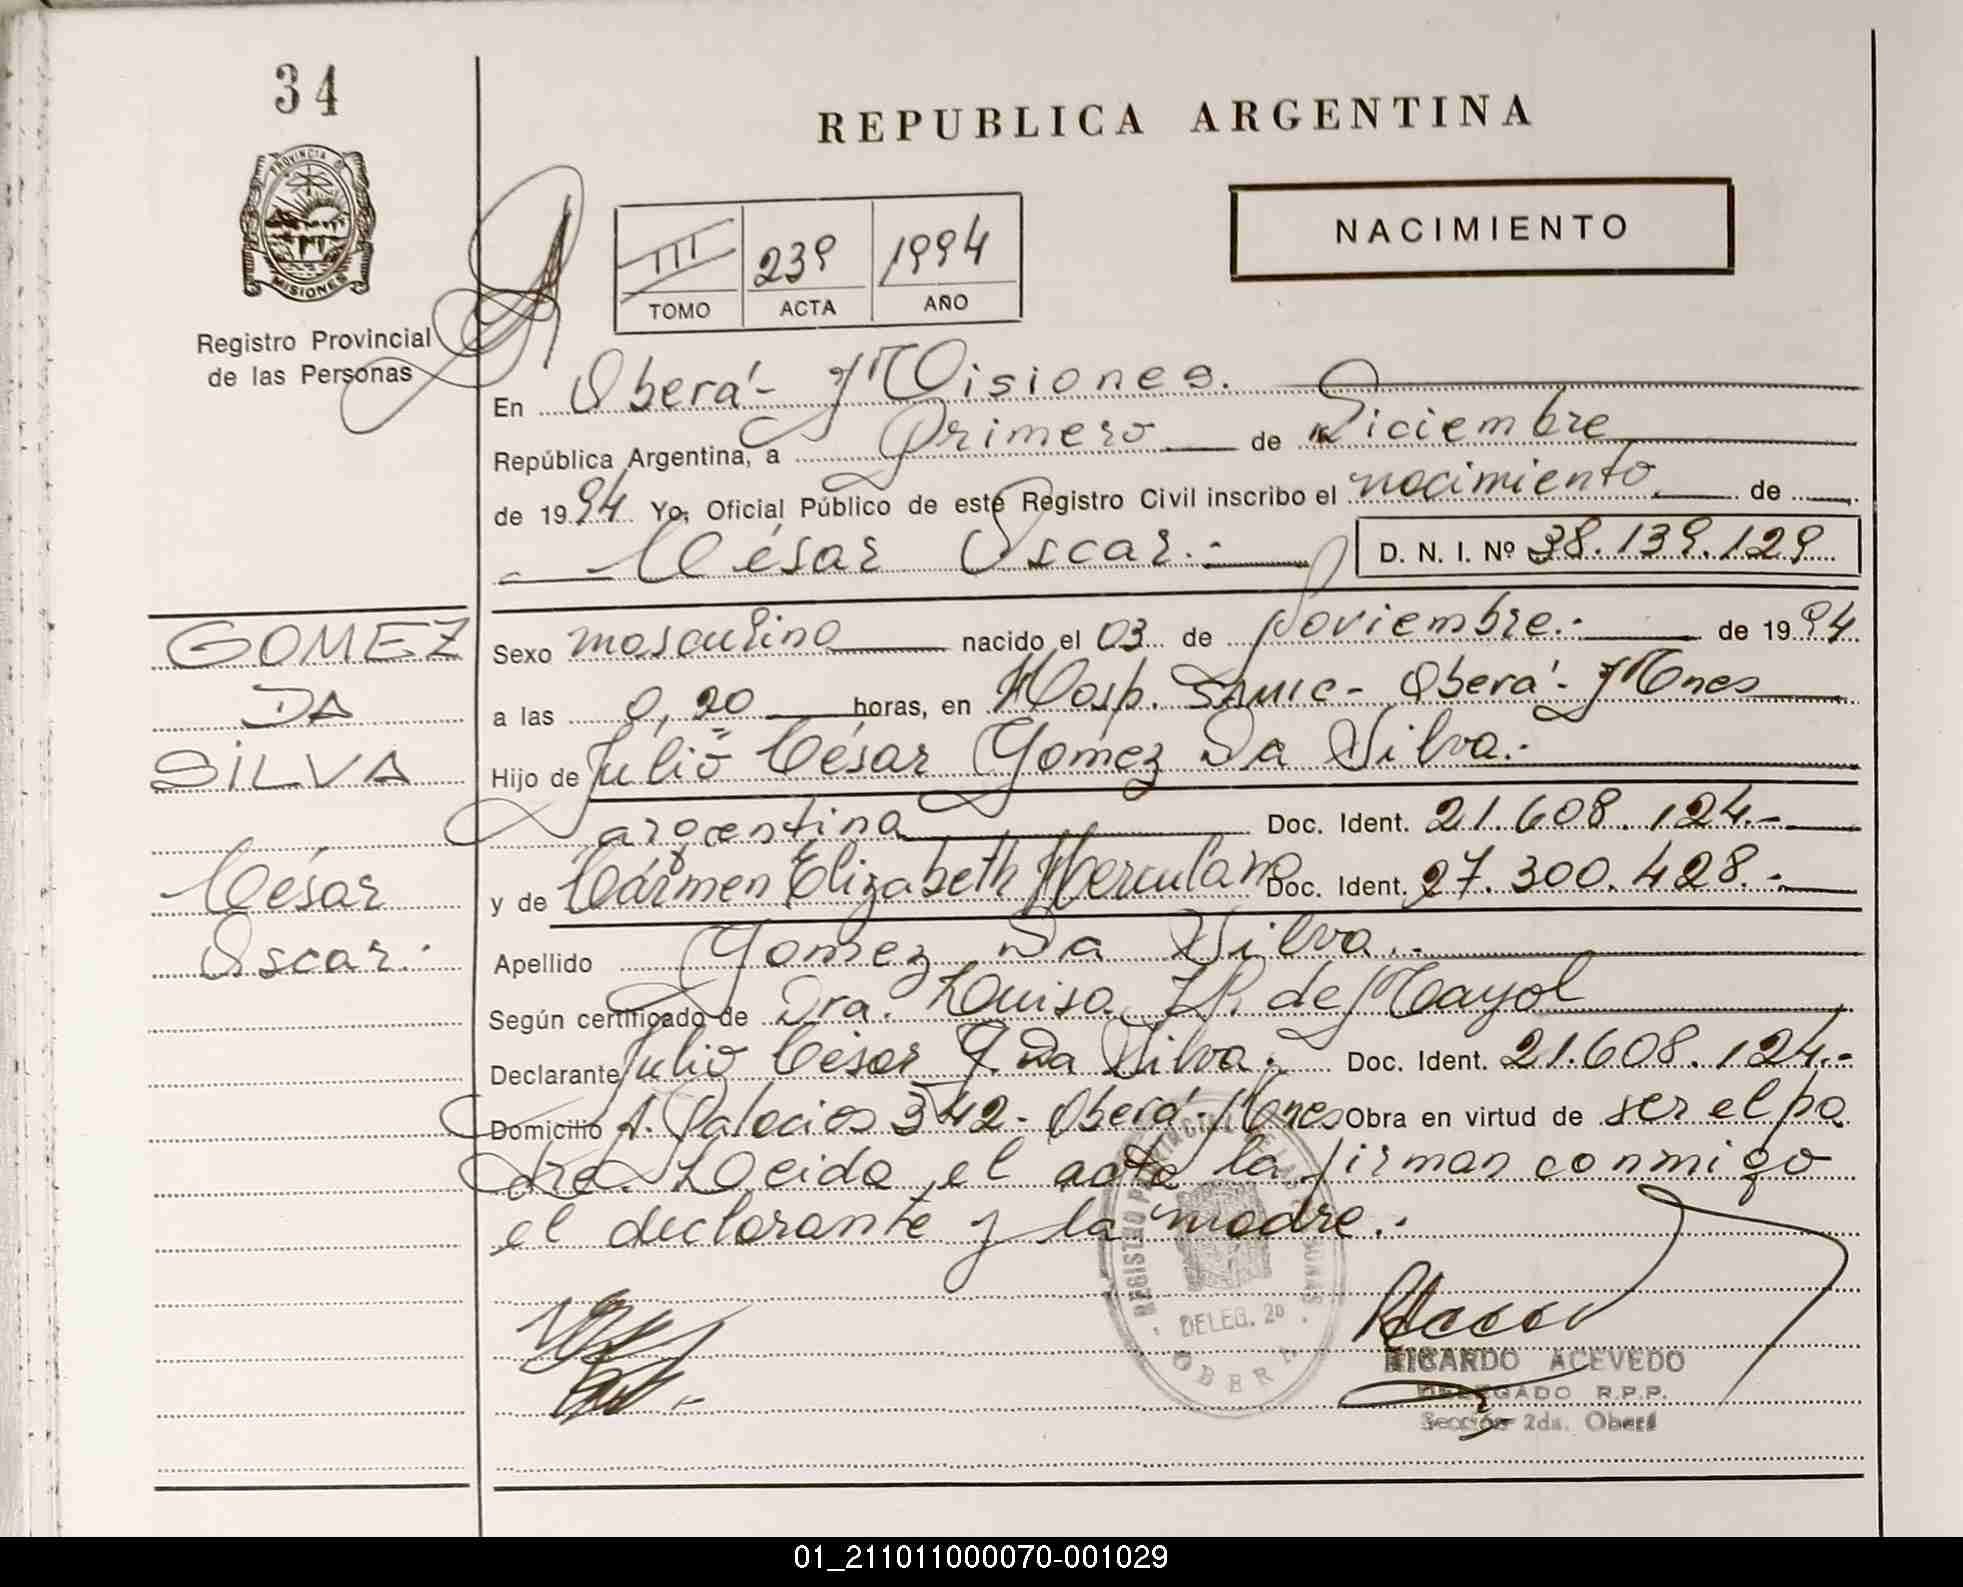 34
REPUBLICA ARGENTINA
PROVINCIA DE
MISIONES
Registro Provincial
de las Personas
III 239 1994
TOMO ACTA AÑO
NACIMIENTO
En Oberá - Misiones.
República Argentina, a Primero de Diciembre
de 1994 Yo, Oficial Público de este Registro Civil inscribo el nacimiento de
César Oscar.- D. N. I. Nº 38.139.129
GOMEZ
DA
SILVA
César
Oscar.-
Sexo masculino nacido el 03 de Noviembre.- de 1994
a las 0,20 horas, en Hosp. SAMIC - Oberá - Mnes
Hijo de Julio César Gomez Da Silva.-
argentina Doc. Ident. 21.608.124.-
y de Cármen Elizabeth Herculano Doc. Ident. 27.300.428.-
Apellido Gomez Da Silva.-
Según certificado de Dra. Luisa de Mayol
Declarante Julio César G. Da Silva.- Doc. Ident. 21.608.124.-
Domicilio A. Palacios 342 - Oberá - Mnes Obra en virtud de ser el pa
dre. Leida el acta la firman conmigo
el declarante y la madre.-
REGISTRO PROVINCIAL DE LAS PERSONAS
DELEG. 2ª
OBERA
RICARDO ACEVEDO
DELEGADO R.P.P.
Sección 2da. Oberá
01_211011000070-001029